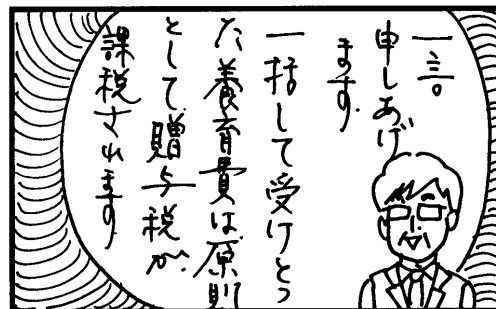 一言
申しあげ
ます
一括して受けとっ
た養育費は原則
として贈与税が
課税されます